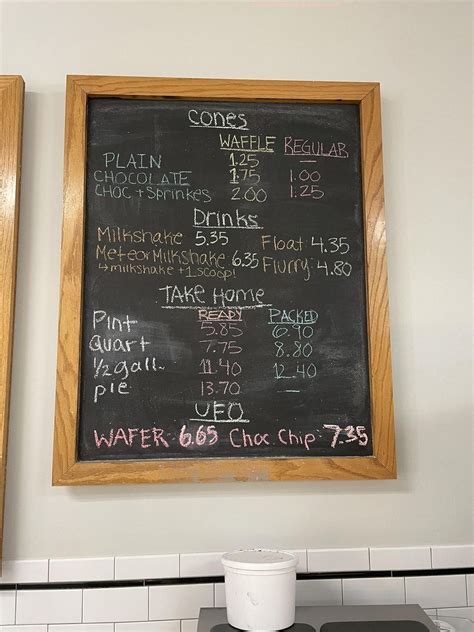 Cones
WAFFLE REGULAR
PLAIN 1.25 —
CHOCOLATE 1.75 1.00
CHOC + Sprinkes 2.00 1.25
Drinks
Milkshake 5.35 Float 4.35
Meteor Milkshake 6.35 Flurry 4.80
↳ milkshake + 1 scoop!
TAKE HOME
READY PACKED
Pint 5.85 6.90
Quart 7.75 8.80
1/2 gall. 11.40 12.40
pie 13.70 —
UFO
WAFER 6.65 Choc Chip 7.35